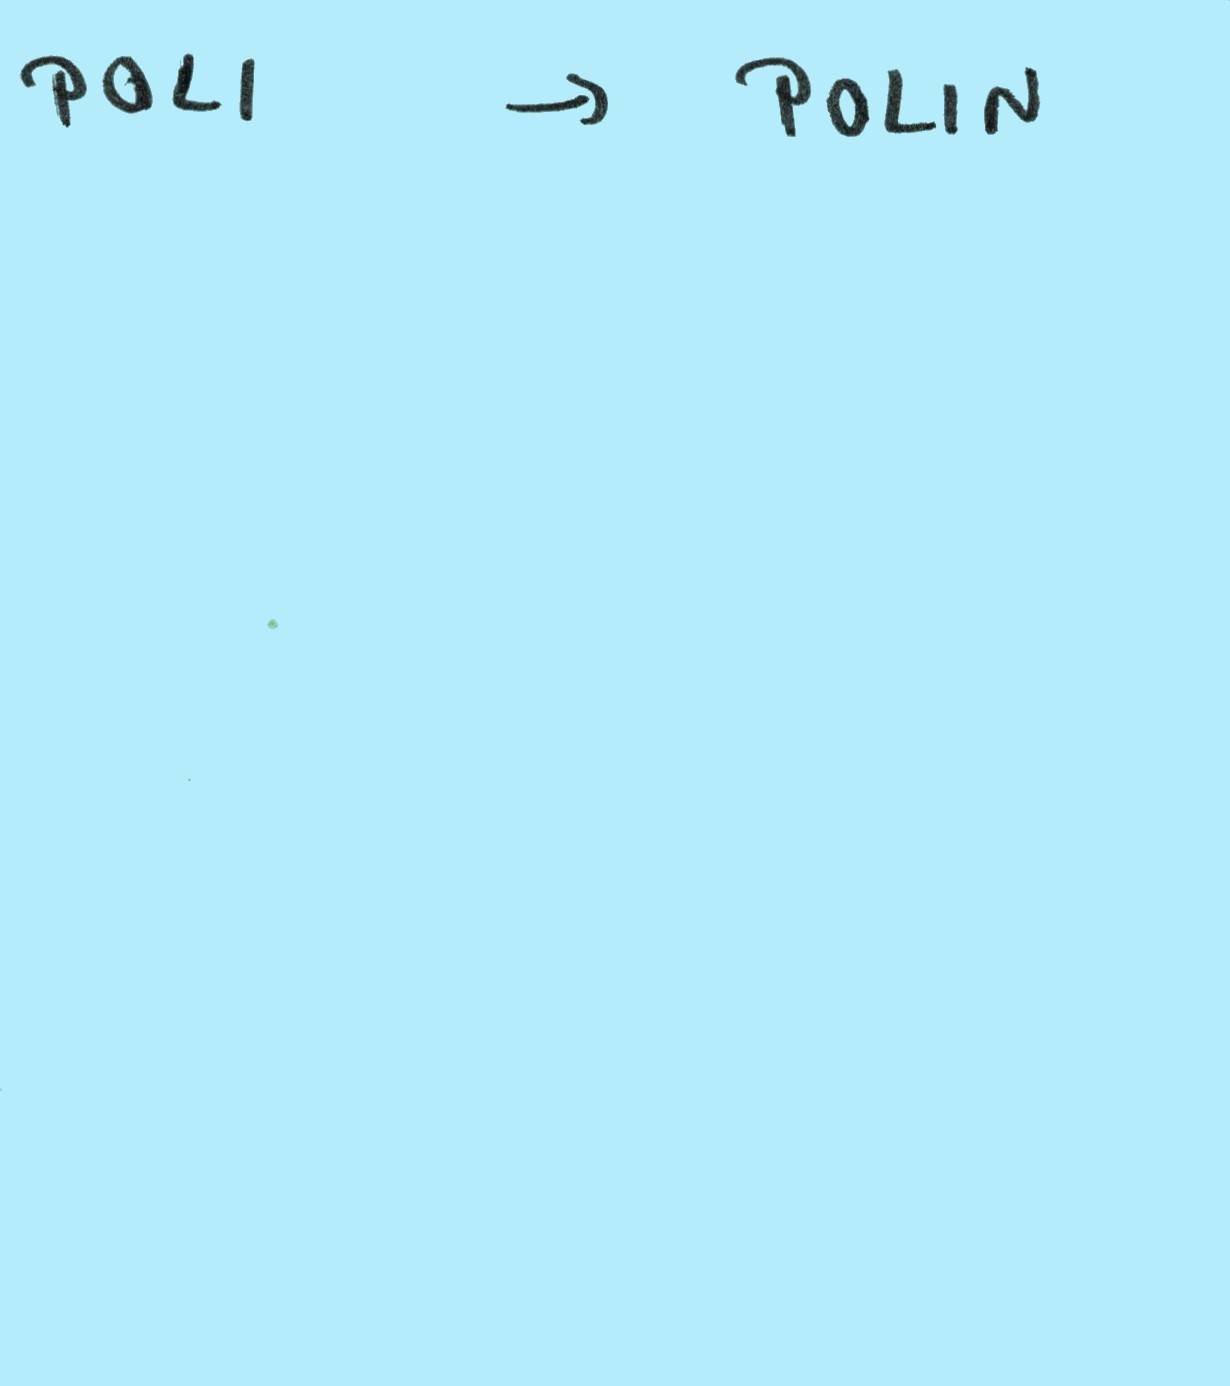 POLI → POLIN